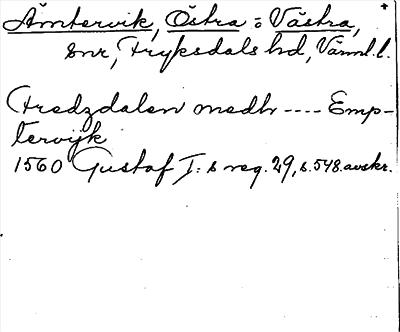 Ämtervik, Östra o Västra,
snr, Fryksdals hd, Värml. l.
Fredzdalen medh ---- Emp-
tervijk
1560 Gustaf I:s reg. 29, s. 548. avskr.